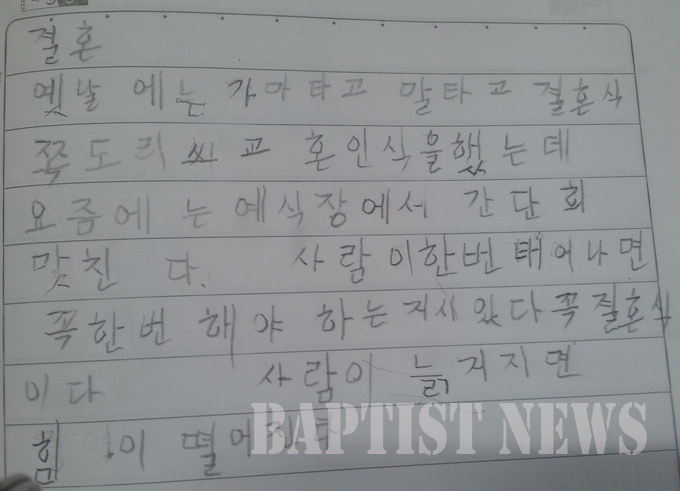 결혼
옛날 에는 가마타고 말타고 결혼식
쪽도리 씨고 혼인식을했는데
요즘에 는 예식장에서 간단희
맞친 다. 사람이한번 태어나면
꼭한번 해야 하는 지시있다 꼭 결혼식
이다 사람이 늙거지면
힘 이 떨어진다
BAPTIST NEWS